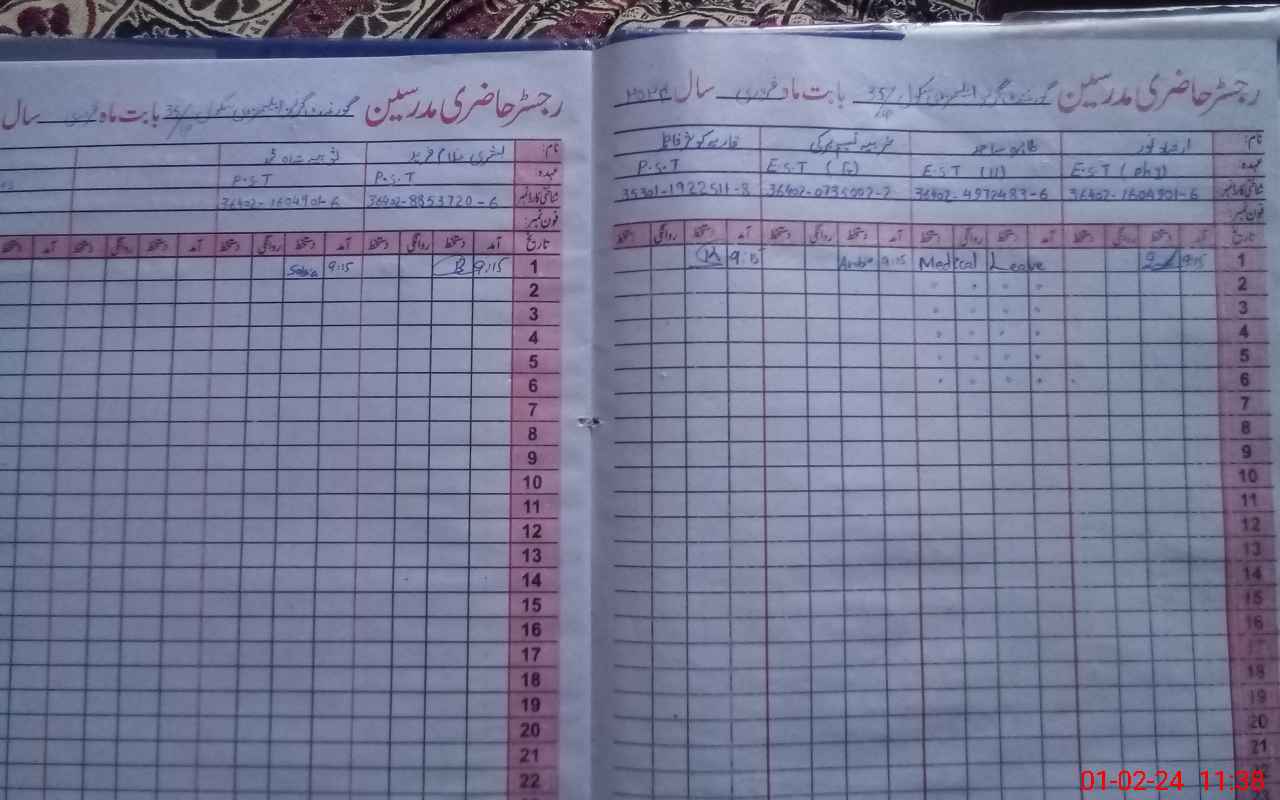 رجسٹر حاضری مدرسین گورنمنٹ گرلز ایلیمنٹری سکول 35/ بابت ماہ فروری سال ۲۰۲۴
نام:
عہدہ: E.S.T (Phy) E.S.T (III) E.S.T P.S.T
شناختی کارڈ نمبر 36402-1604901-6 36402-4972483-6 36402-0735002-2 35301-1922511-8
فون نمبر:
تاریخ آمد دستخط روانگی دستخط آمد دستخط روانگی دستخط آمد دستخط روانگی دستخط آمد دستخط روانگی دستخط
1 9:15 Medical Leave 9:15 9:15
2
3
4
5
6
7
8
9
10
11
12
13
14
15
16
17
18
19
20
21
رجسٹر حاضری مدرسین گورنمنٹ گرلز ایلیمنٹری سکول 35/ بابت ماہ فروری سال
نام:
عہدہ: P.S.T P.S.T
شناختی کارڈ نمبر 36402-8853720-6 36402-1604901-6
فون نمبر:
تاریخ آمد دستخط روانگی دستخط آمد دستخط روانگی دستخط آمد دستخط روانگی دستخط آمد دستخط
1 9:15 9:15
2
3
4
5
6
7
8
9
10
11
12
13
14
15
16
17
18
19
20
21
22
01-02-24 11:38